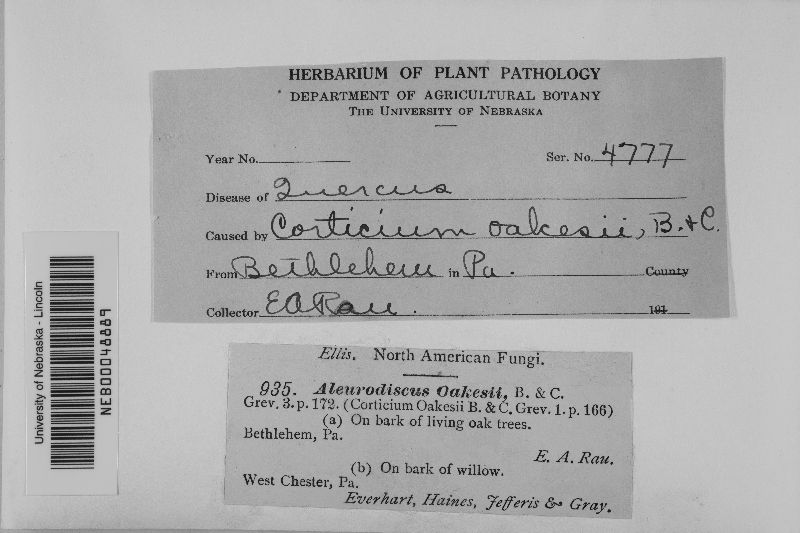 HERBARIUM OF PLANT PATHOLOGY
DEPARTMENT OF AGRICULTURAL BOTANY
THE UNIVERSITY OF NEBRASKA
Year No. Ser. No. 4777
Disease of Quercus
Caused by Corticium oakesii, B. & C.
From Bethlehem in Pa. County
Collector E A Rau. 191
Ellis. North American Fungi.
935. Aleurodiscus Oakesii, B. & C.
Grev. 3. p. 172. (Corticium Oakesii B. & C. Grev. 1. p. 166)
(a) On bark of living oak trees.
Bethlehem, Pa.
E. A. Rau.
(b) On bark of willow.
West Chester, Pa.
Everhart, Haines, Jefferis & Gray.
University of Nebraska - Lincoln
NEB00048889